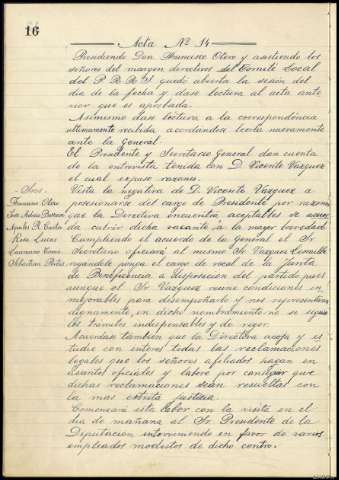 16
Acta Nº 14
Presidiendo Don Francisco Otero y asistiendo los
señores del margen directivos del Comité Local
del P R R S quedó abierta la sesión del
dia de la fecha y dase lectura al acta ante
rior que es aprobada.
Asimismo dase lectura a la correspondencia
ultimamente recibida acordandose leerla nuevamente
ante la General.
El Presidente y Secretario General dan cuenta
de la entrevista tenida con D. Vicente Vazquez
el cual expuso razones.
Sres.
Francisco Otero
José Adrio
Apeles R.
Rios Lucas
Laureano
Sebastian
Vista la negativa de D. Vicente Vazquez a
posesionarse del cargo de Presidente por razones
que la Directiva encuentra aceptables se acuer
da cubrir dicha vacante a la mayor brevedad
Cumpliendo el acuerdo de la General el Sr
Secretario oficiará al mismo Sr Vazquez
ponga el cargo de vocal de la Junta
de Beneficencia a disposicion del partido pues
aunque el Sr Vazquez reune condiciones in
mejorables para desempeñarlo y nos representaria
dignamente, en dicho nombramiento no se siguio
los tramites indispensables y de rigor.
Acuerdase tambien que la Directiva acoja y es
tudie con interes todas las reclamaciones
legales que los señores afiliados hagan en
asuntos oficiales y labore por conseguir que
dichas reclamaciones sean resueltas con
la mas estricta justicia
Comenzará esta labor con la visita en el
dia de mañana al Sr. Presidente de la
Diputacion interviniendo en favor de varios
empleados modestos de dicho centro.